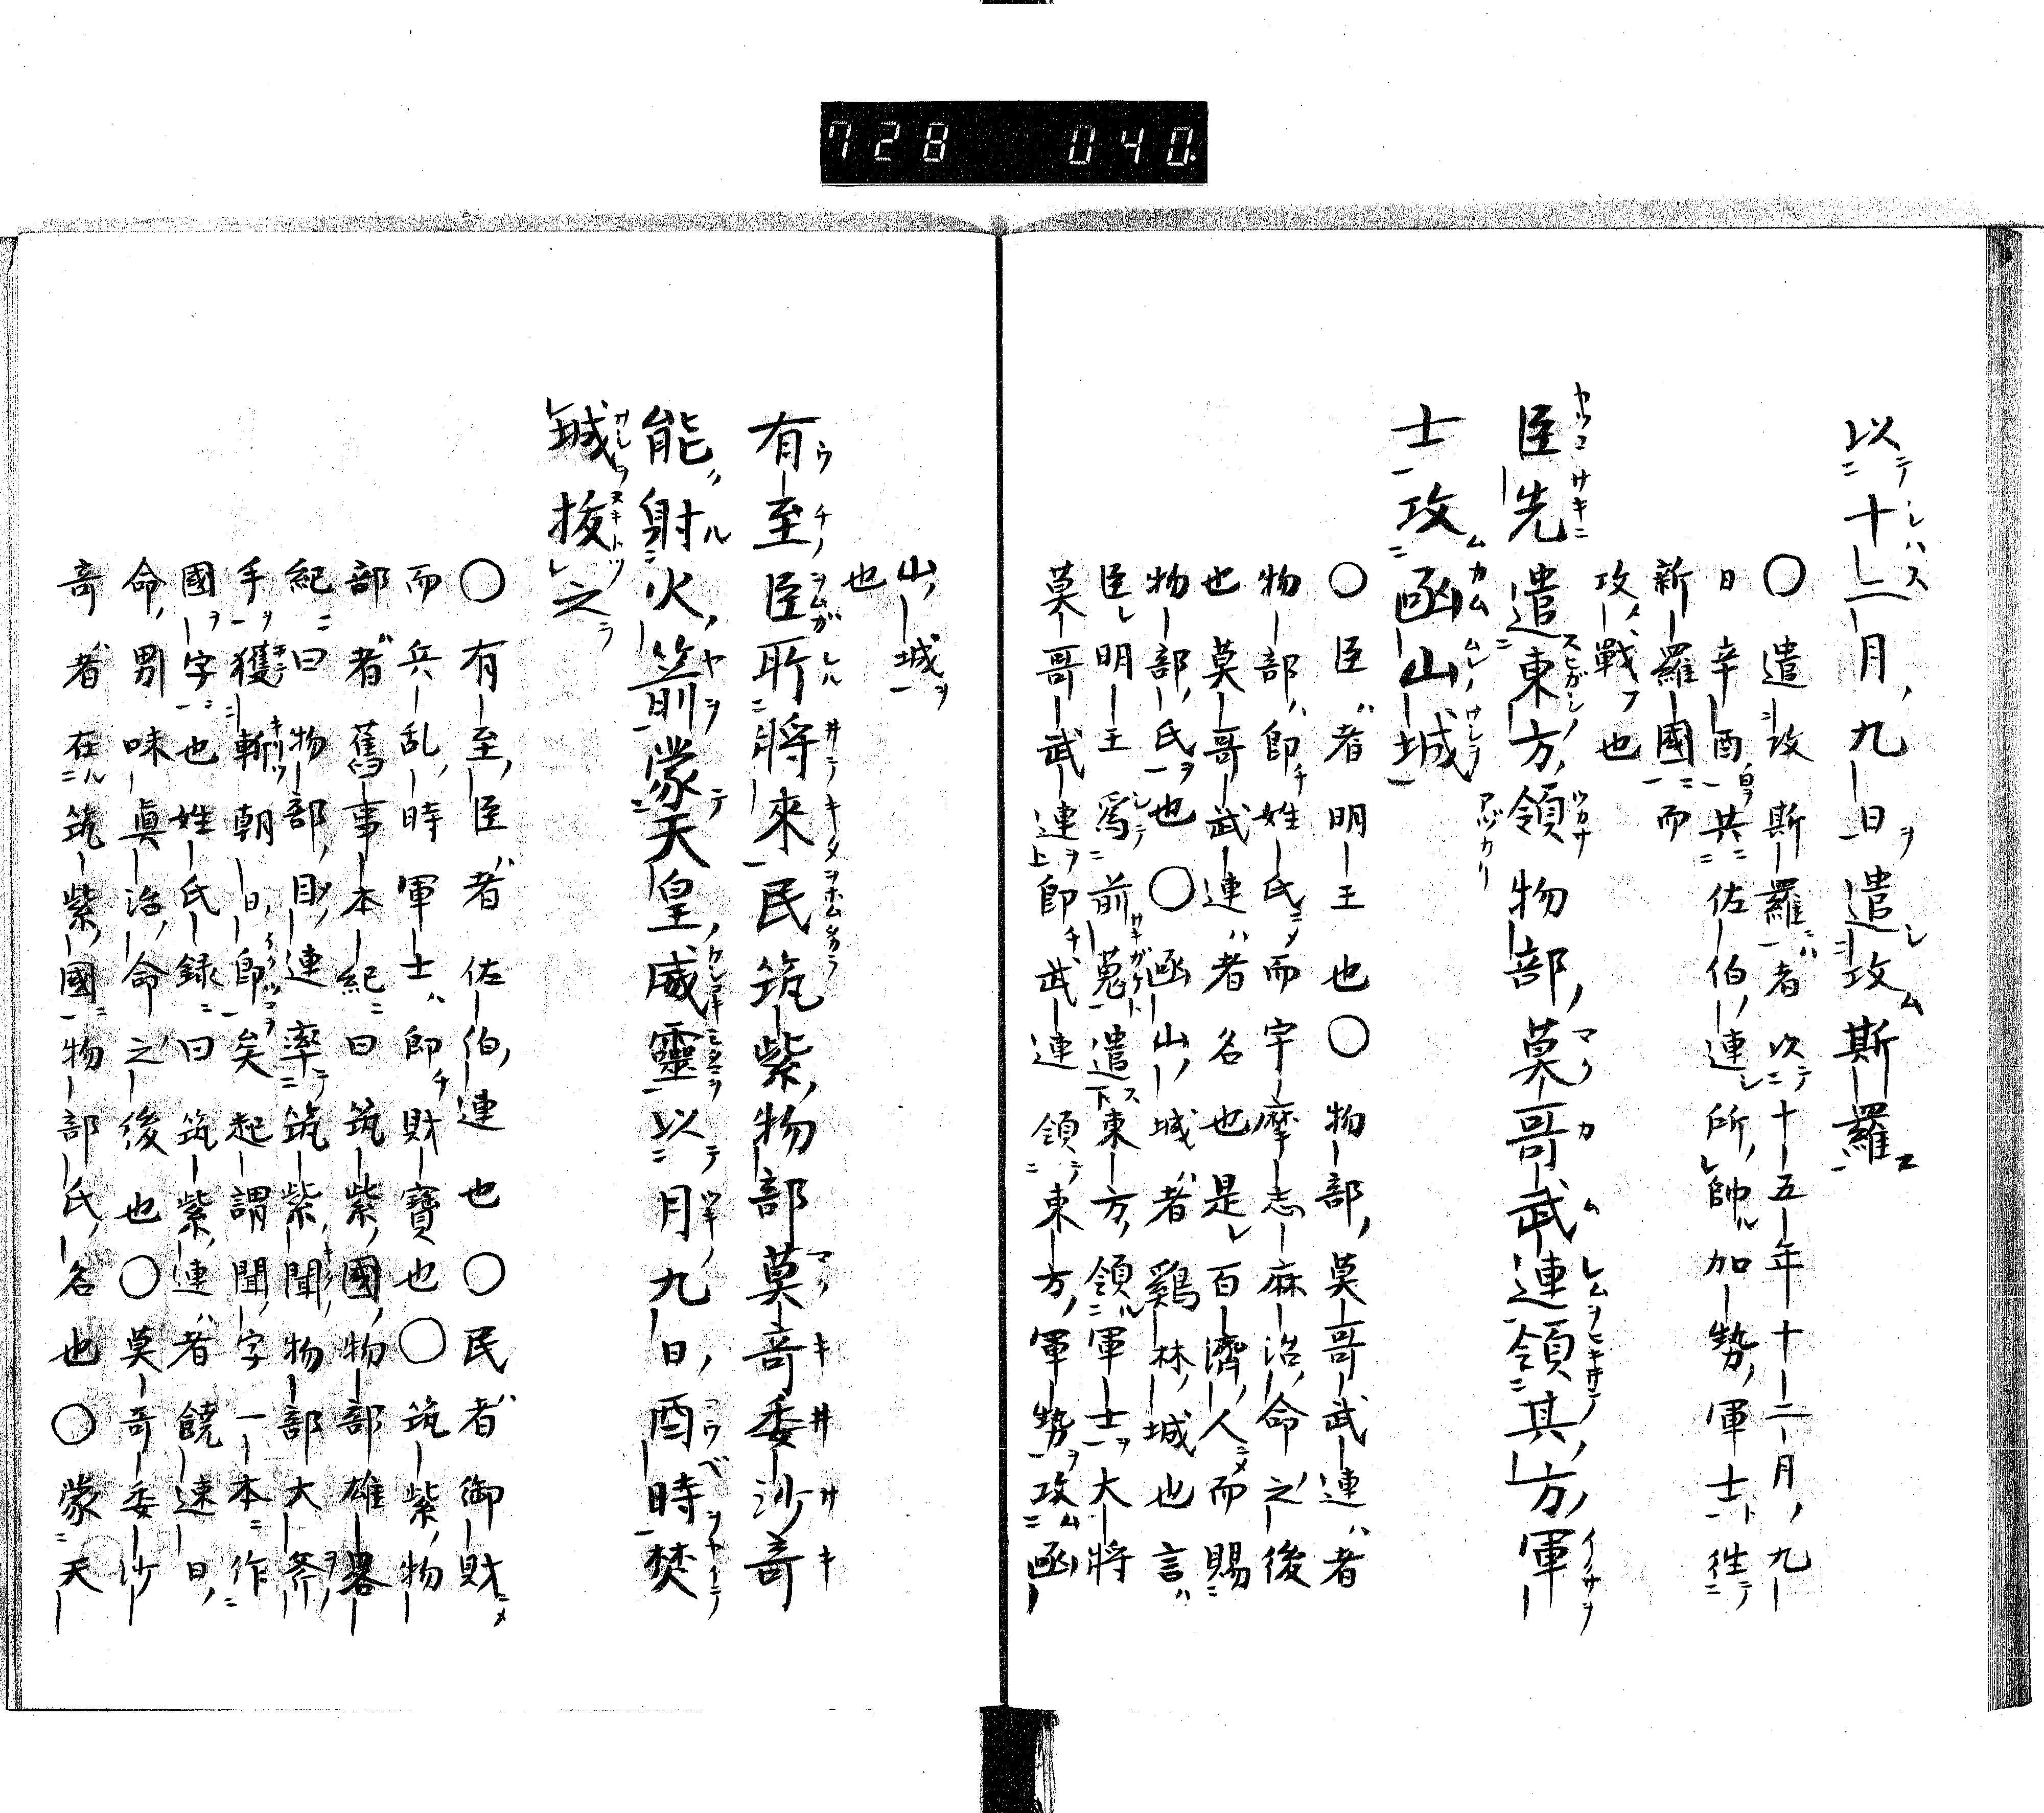 728 040.
以十二月九日遣攻斯羅
〇遣攻斯羅者以十五年十二月九
日辛酉共佐伯連所帥加勢軍士徃
新羅國而
攻戰也
臣先遣東方領物部莫哥武連領其方軍
士攻凾山城
〇臣者明王也〇物部莫哥武連者
物部即姓氏而宇摩志麻治命之後
也莫哥武連者名也是百濟人而賜
物部氏也〇凾山城者鷄林城也言
臣明王為前蒐遣東方領軍士大將
莫哥武連即武連領東方軍勢攻凾
山城
也
有至臣所將來民筑紫物部莫奇委沙奇
能射火箭蒙天皇威靈以月九日酉時焚
城拔之
〇有至臣者佐伯連也〇民者御財
而兵乱時軍士即財寶也〇筑紫物
部者舊事本紀曰筑紫國物部雄畧
紀曰物部目連率筑紫聞物部大斧
手獲斬朝日郎矣起謂聞字一本作
國字也姓氏録曰筑紫連者饒速日
命男味眞治命之後也〇莫奇委沙
奇者在筑紫國物部氏名也〇蒙天